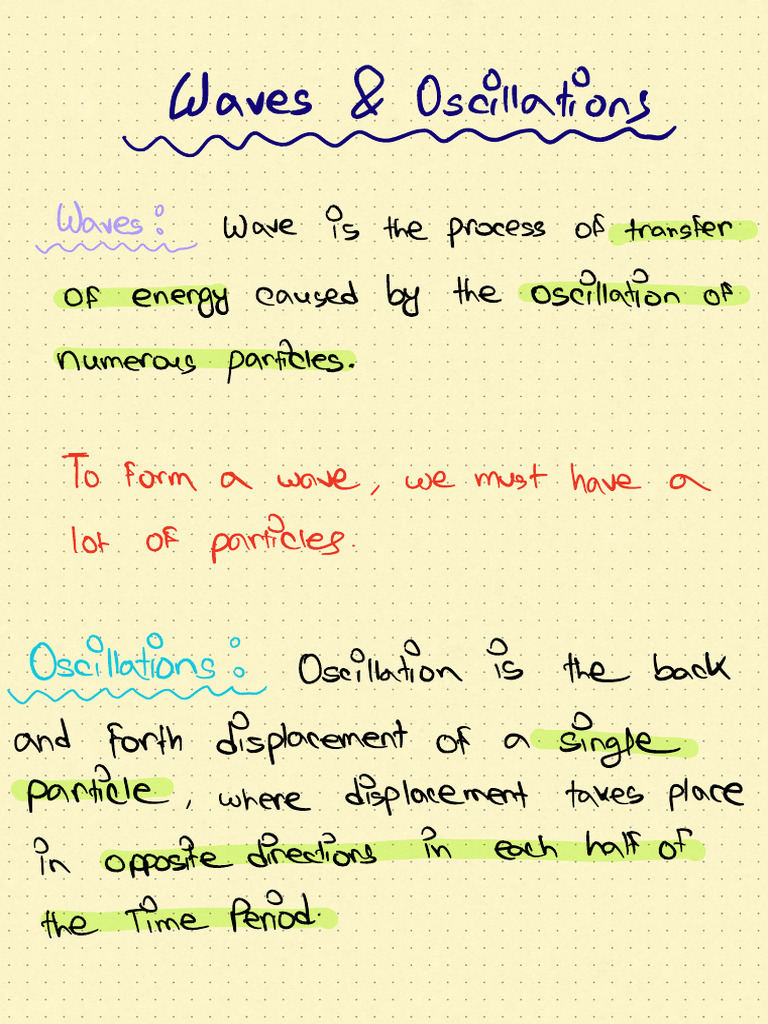 Waves & Oscillations
Waves: Wave is the process of transfer
of energy caused by the oscillation of
numerous particles.
To form a wave, we must have a
lot of particles.
Oscillations: Oscillation is the back
and forth displacement of a single
particle, where displacement takes place
in opposite directions in each half of
the Time Period.